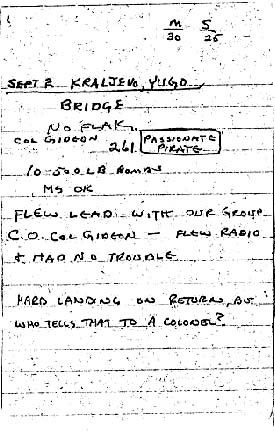 M S
30 25
SEPT 2 KRALJEVO, YUGO,
BRIDGE
NO FLAK.
COL GIDEON 261 PASSIONATE
PIRATE
10-500 LB BOMBS
MS OK
FLEW LEAD WITH OUR GROUP
C.O. COL GIDEON — FLEW RADIO
& HAD NO TROUBLE
HARD LANDING ON RETURN, BUT
WHO TELLS THAT TO A COLONEL?